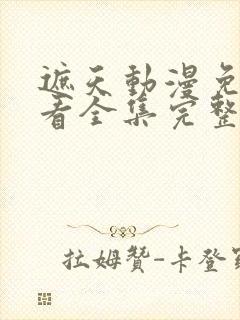 遮天動漫免
看全集完整
拉姆贊-卡登羅